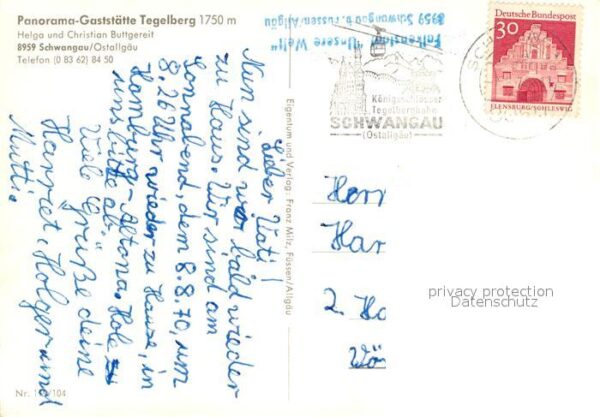 Panorama-Gaststätte Tegelberg 1750 m
Helga und Christian Buttgereit
8959 Schwangau/Ostallgäu
Telefon (0 83 62) 84 50
Lieber Vati!
Nun sind wir bald wieder
zu Haus. Wir sind am
Sonnabend, dem 8.8.70, um
8.26 Uhr wieder zu Hause, in
Hamburg-Altona. Hole
uns bitte ab.
Viele Grüße deine
Harriet, Holger und
Mutti.
Nr. 104
Eigentum und Verlag: Franz Milz, Füssen/Allgäu
"Unsere Welt"
8959 Schwangau b. Füssen/Allgäu
Königsschlösser
Tegelbergbahn
SCHWANGAU
(Ostallgäu)
Deutsche Bundespost
30
FLENSBURG/SCHLESWIG
Herr
Har
2. Ha
privacy protection
Datenschutz